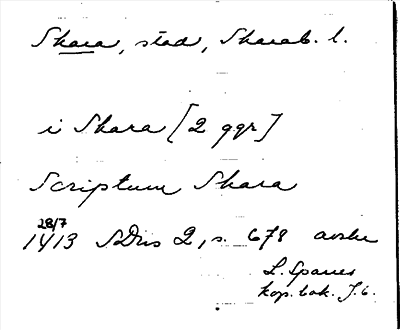 Skara, stad, Skarab. l.
i Skara [2 ggr]
Scriptum Skara
28/7
1413 SDns 2, s. 678 avskr
L. Sparres
kop. bok. f. 6.